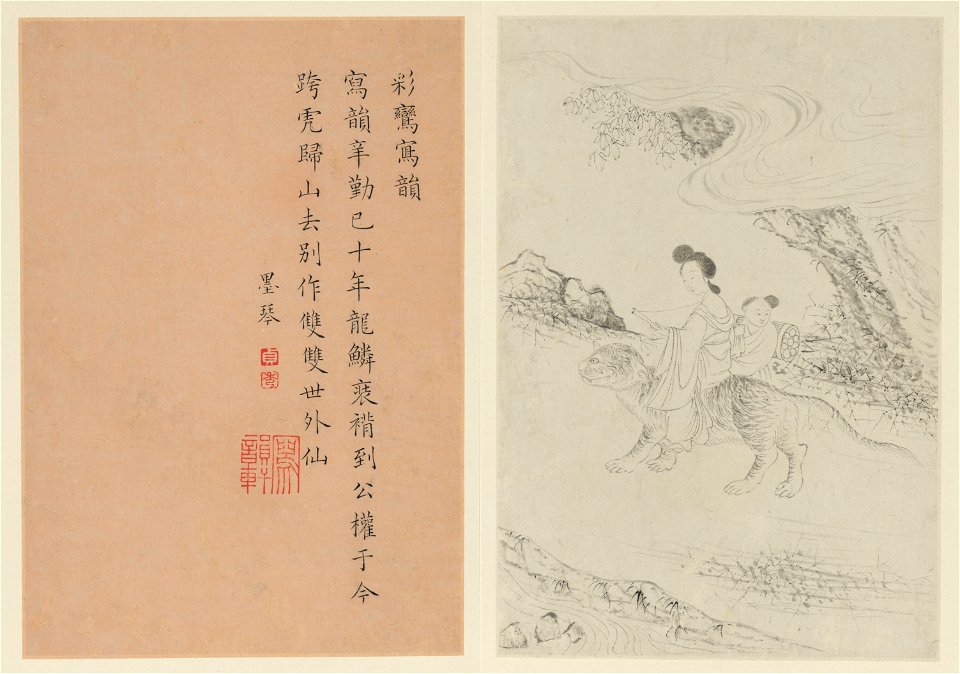 彩鸞寫韻
寫韻辛勤已十年龍鱗裝褙到公權于今
跨虎歸山去別作雙雙世外仙
墨琴
貞
秀